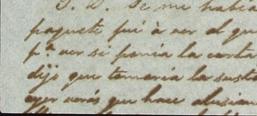 P. D. Se me habia
paquete fui á ver el que
pª ver si ponia la carta
dijo que tomaria la susta
ayer verás que hace alusion